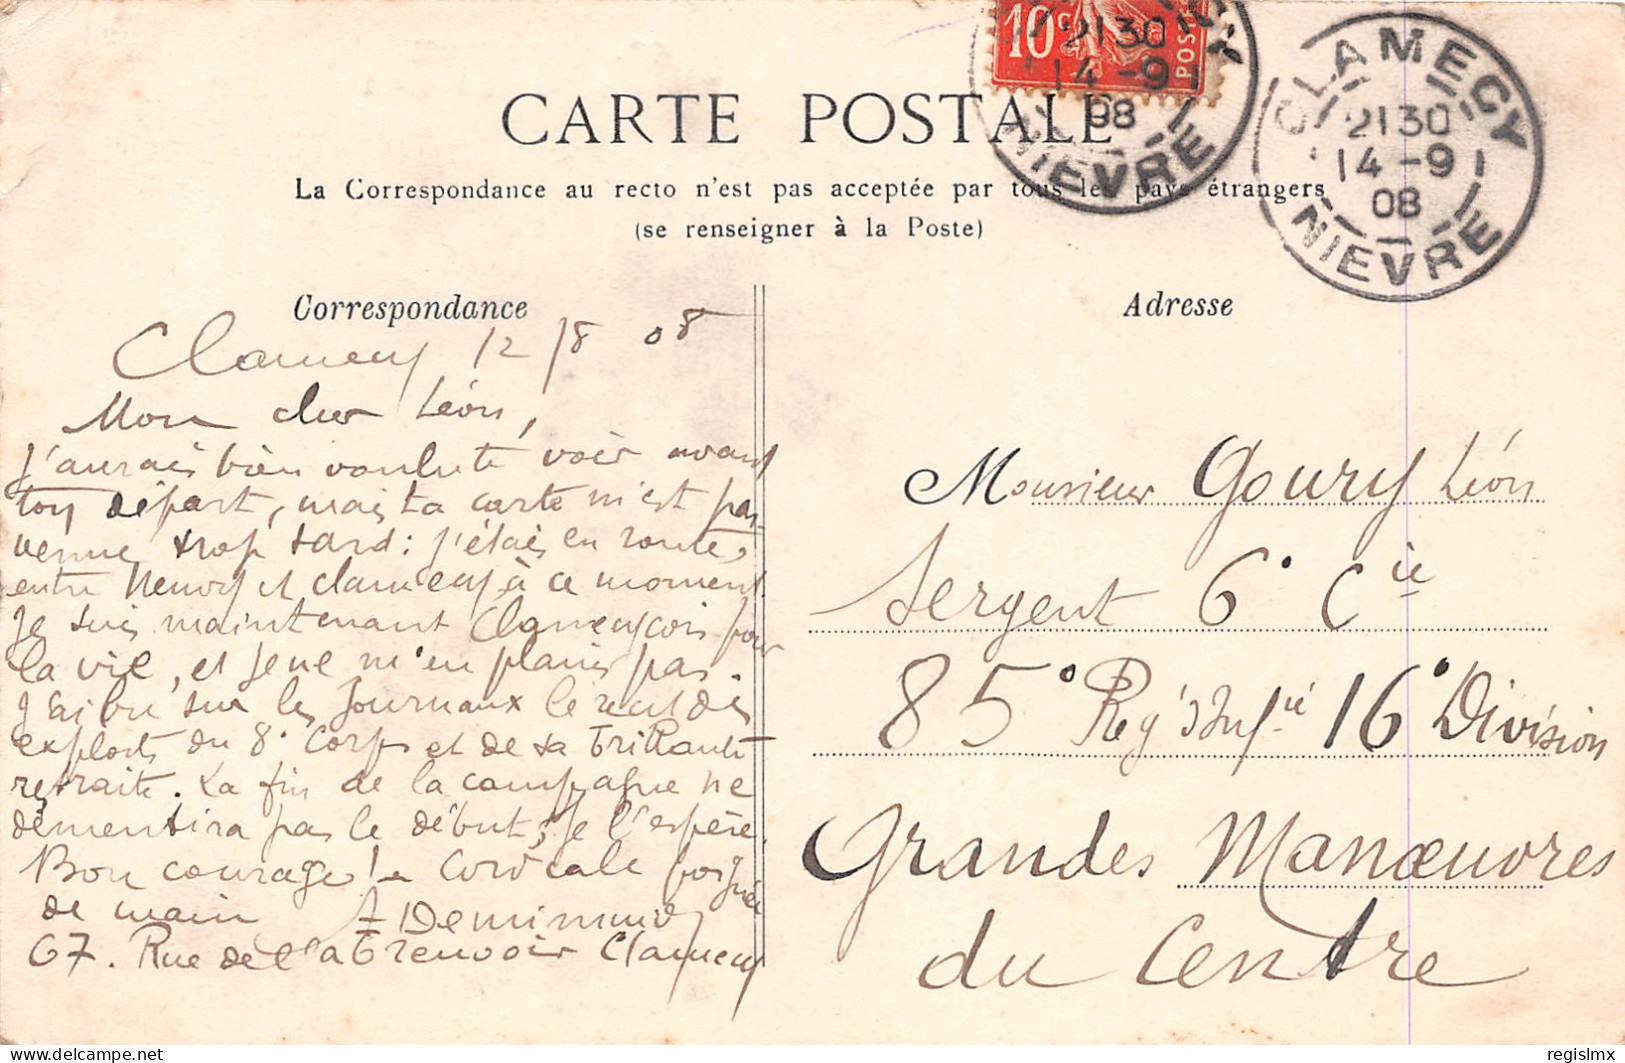 10c
POSTES
2130
14-9
08
NIEVRE
CLAMECY
2130
14-9
08
NIEVRE
CARTE POSTALE
La Correspondance au recto n'est pas acceptée par tous les pays étrangers
(se renseigner à la Poste)
Correspondance
Adresse
Clamecy 12/8 08
Mon cher Léon,
J'aurais bien voulu te voir avant
ton départ, mais ta carte m'est par-
venue trop tard : j'étais en route,
entre Neuvy et Clamecy à ce moment
Je suis maintenant Clamecycois pour
la vie, et je ne m'en plains pas.
J'ai lu sur les Journaux le récit des
exploits du 8e Corps et de sa brillante
retraite. La fin de la campagne ne
démentira pas le début, je l'espère.
Bon courage! Cordiale poignée
de main
67. Rue de l'abreuvoir Clamecy
Monsieur Goury Léon
Sergent 6e Cie
85e Rég. d'Inf.ie 16e Division
Grandes Manœuvres
du Centre
delcampe.net
regislmx